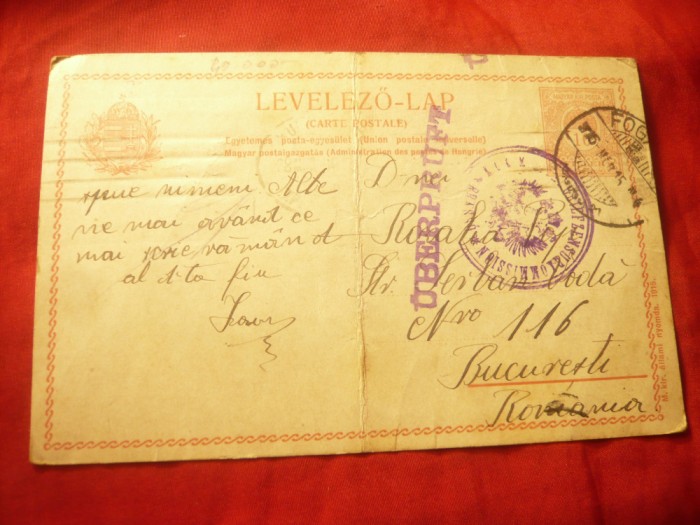 LEVELEZŐ-LAP
(CARTE POSTALE)
Egyetemes posta-egyesület (Union postale universelle)
Magyar postaigazgatás (Administration des postes de Hongrie)
spue nimeni Alte
ne mai având ce
mai scrie rămân
al d-ta fiu
ÜBERPRÜFT
FOG
Rosalia
Str. Șerban Vodă
Nro 116
București
România